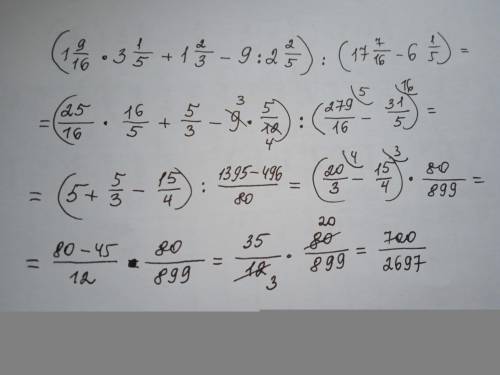 (1 9/16 · 3 1/5 + 1 2/3 - 9 : 2 2/5) : (17 7/16 - 6 1/5) =
= (25/16 · 16/5 + 5/3 - 9 3 · 5/12 4) : (279/16 5 - 31/5 16) =
= (5 + 5/3 - 15/4) : 1395-496/80 = (20/3 4 - 15/4 3) · 80/899 =
= 80-45/12 · 80/899 = 35/12 3 · 80 20/899 = 700/2697